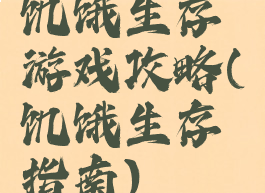 饥饿生存
游戏攻略(
饥饿生存
指南)